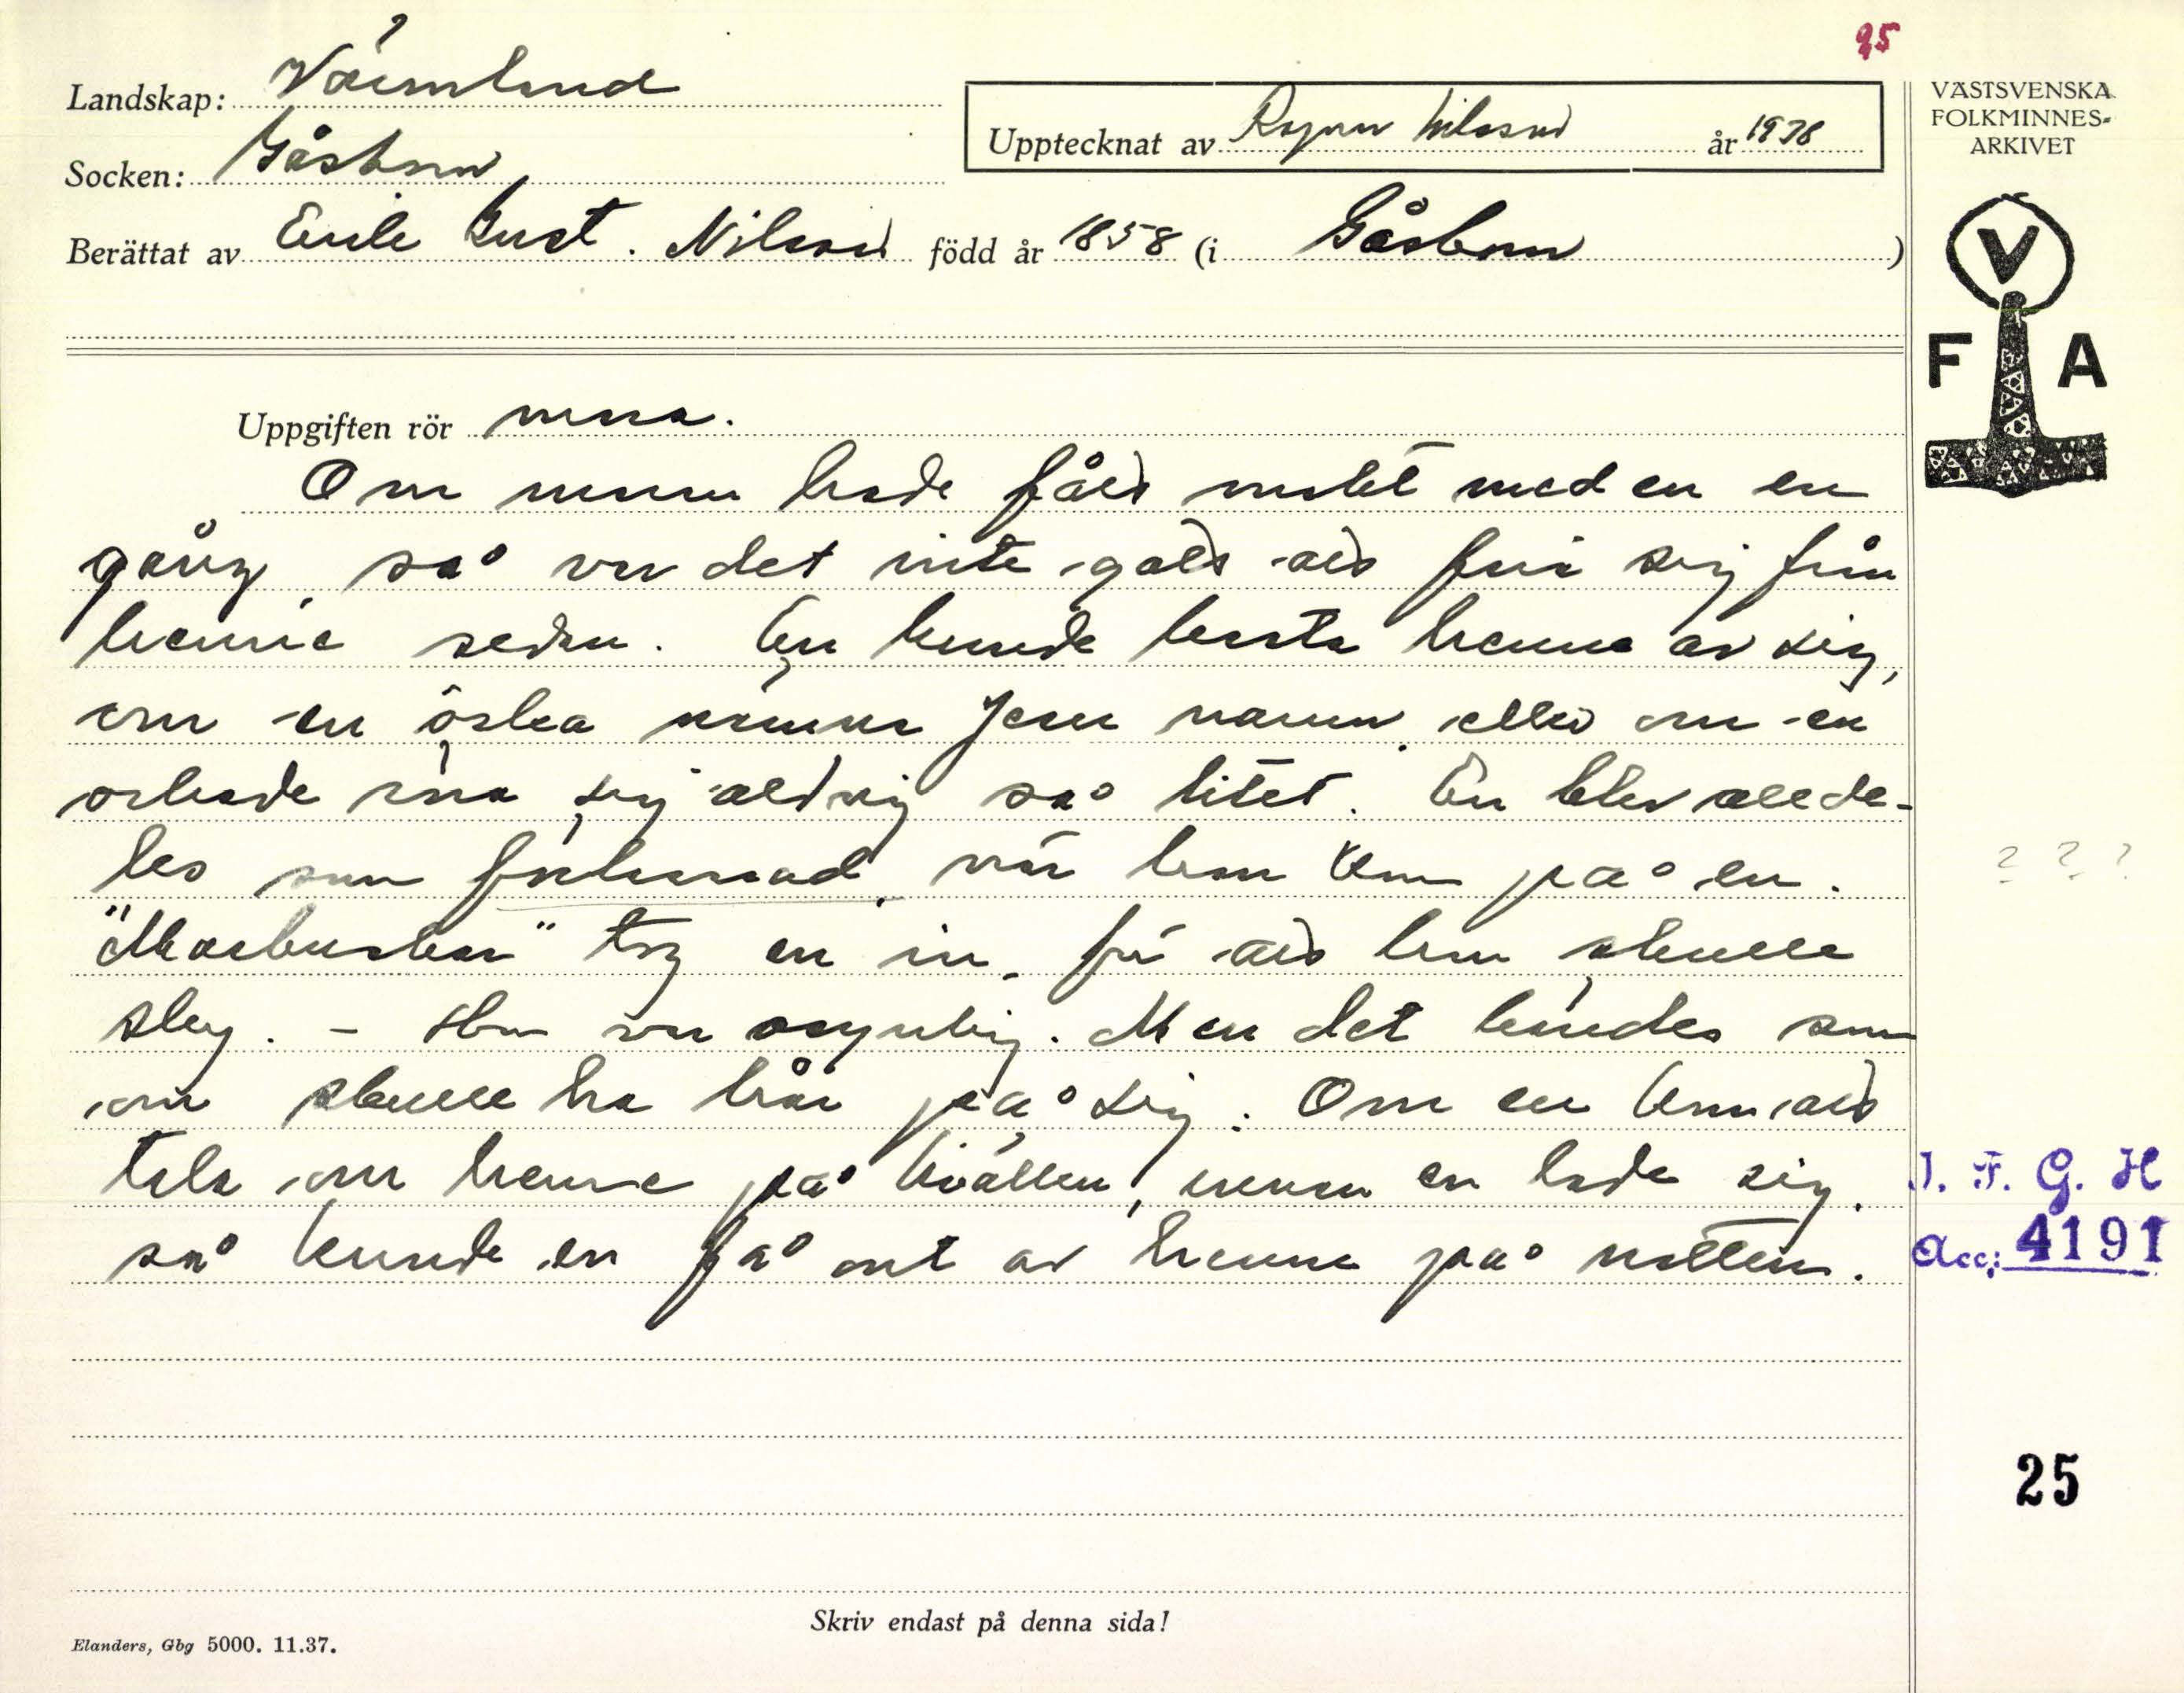 25
Landskap: Värmland
Upptecknat av Ragnar Nilsson år 1938
Socken: Gåsborn
Berättat av Emile Gust. Nilsson född år 1858 (i Gåsborn)
VÄSTSVENSKA
FOLKMINNES-
ARKIVET
V
F A
Uppgiften rör mara.
Om maran hade fått makt med en en
gång, så var det inte gått att fria sig från
henne sedan. En kunde kasta henne av sig,
om en orka nämna Jesu namn, eller om en
orkade röra sig aldrig så litet. En blev allde-
les som förlamad, när hon kom på en.
"Marbuskar" tog en in, för att hon skulle
sky. - Hon var osynlig. Men det kändes som
om skulle ha hår på sig. Om en kom att
tala om henne på kvällen, innan en lade sig,
så kunde en få ont av henne på natten.
? ? ?
I. F. G. H
Acc: 4191
25
Skriv endast på denna sida!
Elanders, Gbg 5000. 11.37.